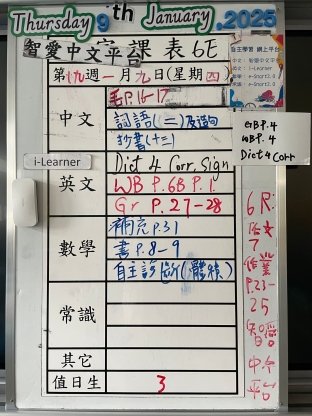 Thursday 9th January, 2025
智愛中文平台 家課表 6E
第十九週一月九日(星期四)
中文
毛P.16-17
詞語(二)及造句
抄書(十三)
i-Learner
英文
Dict 4 Corr Sign
WB P.68 P.1
Gr P.27-28
數學
補充P.31
書P.8-9
自主診斷(體積)
常識
其它
值日生
3
自主學習 網上平台
GrB P.4
WB P.4
Dict 4 Corr
作業
P.23-
25
智愛
中文
平台